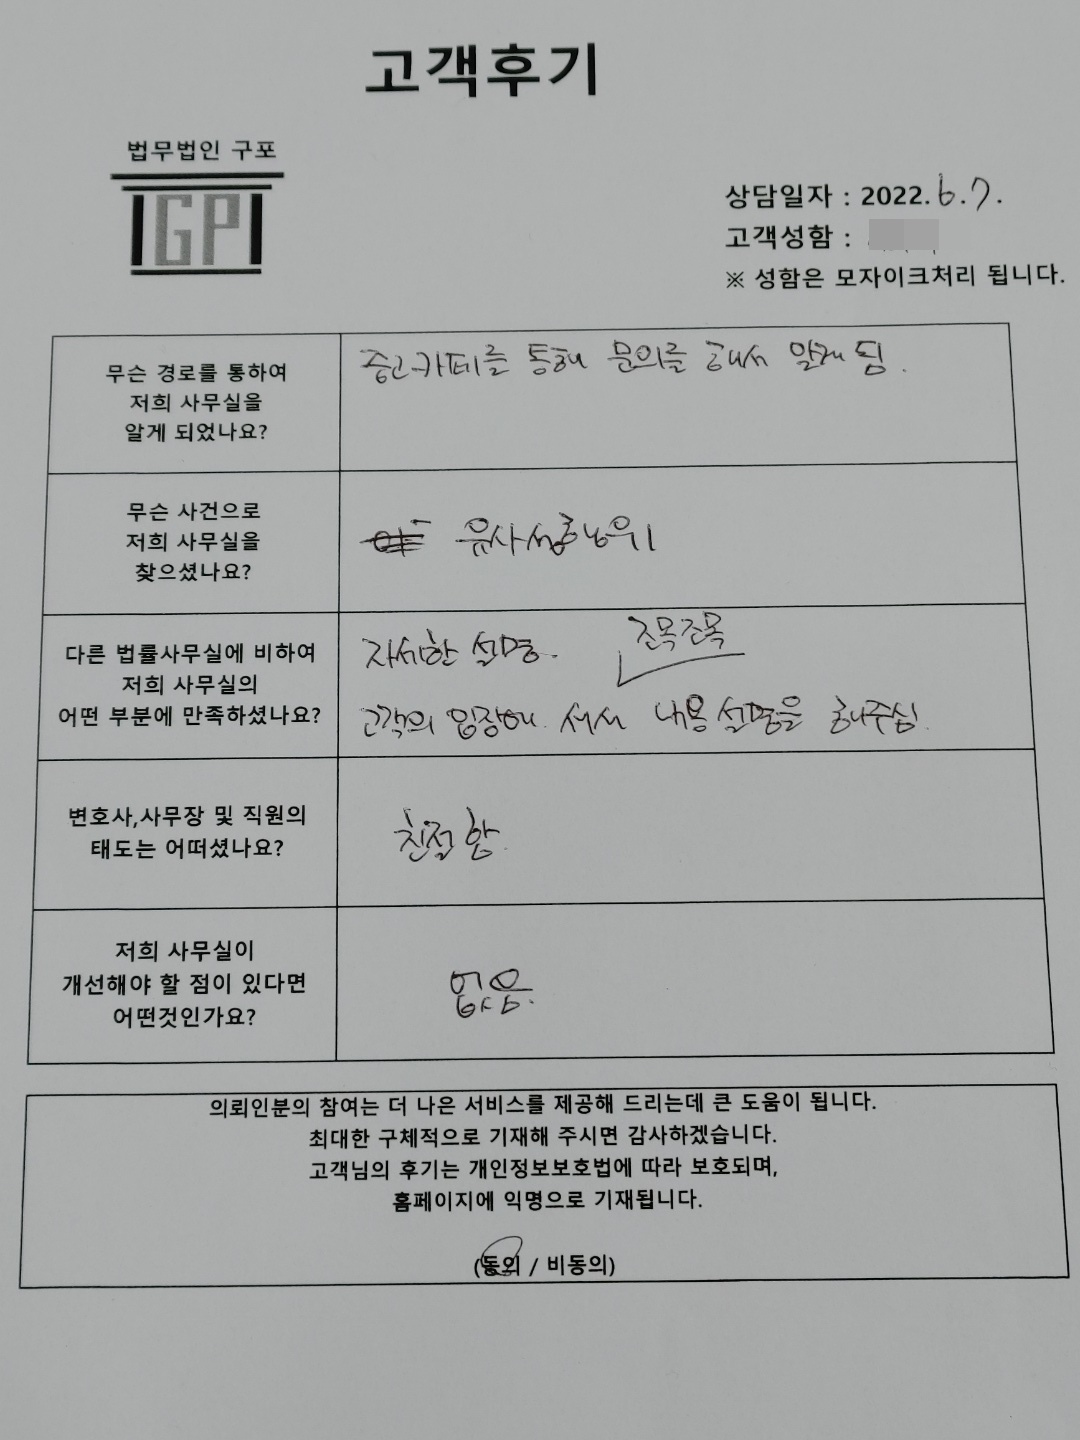 고객후기
법무법인 구포
GP
상담일자 : 2022. 6.7.
고객성함 :
※ 성함은 모자이크처리 됩니다.
무슨 경로를 통하여
저희 사무실을
알게 되었나요?
중고카페를 통해 문의를 해서 알게 됨.
무슨 사건으로
저희 사무실을
찾으셨나요?
유사성행위
다른 법률사무실에 비하여
저희 사무실의
어떤 부분에 만족하셨나요?
자세한 설명. 조목조목
고객의 입장에 서서 내용 설명을 해주심.
변호사,사무장 및 직원의
태도는 어떠셨나요?
친절함.
저희 사무실이
개선해야 할 점이 있다면
어떤것인가요?
없음.
의뢰인분의 참여는 더 나은 서비스를 제공해 드리는데 큰 도움이 됩니다.
최대한 구체적으로 기재해 주시면 감사하겠습니다.
고객님의 후기는 개인정보보호법에 따라 보호되며,
홈페이지에 익명으로 기재됩니다.
(동의 / 비동의)